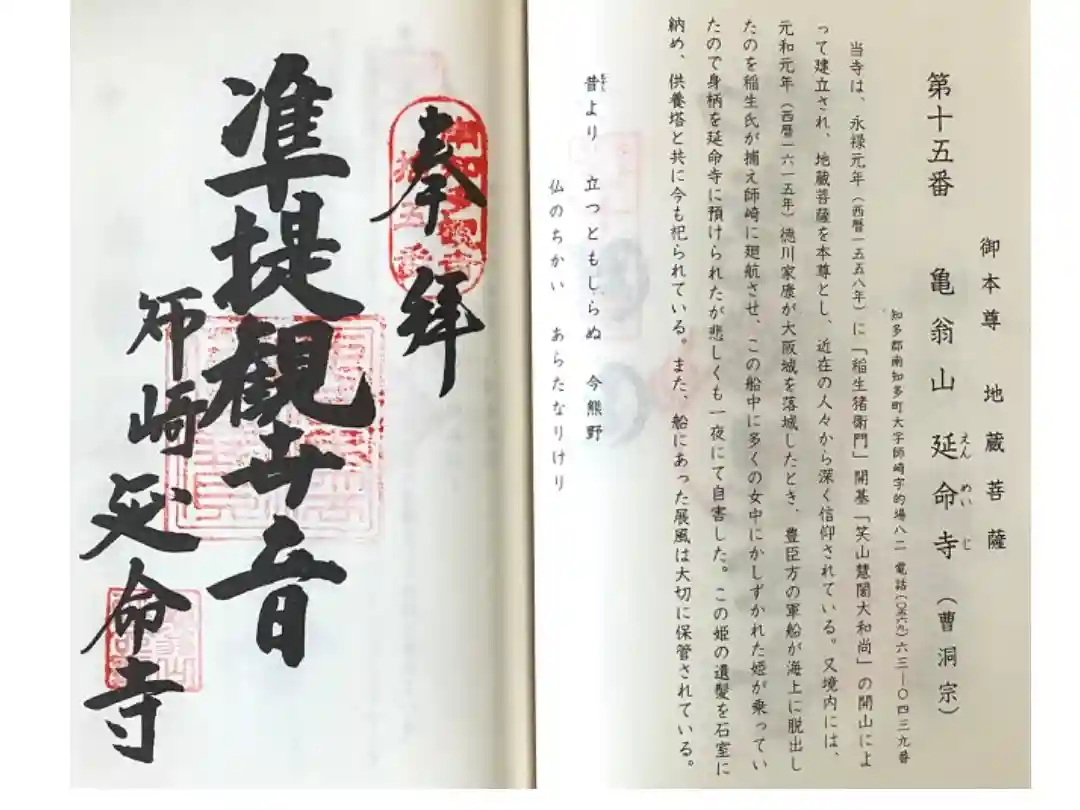 御本尊 地蔵菩薩
第十五番 亀翁山 延命寺(曹洞宗)
えんめいじ
知多郡南知多町大字師崎字的場八二 電話(〇五六九)六三―〇四三九番
当寺は、永禄元年(西暦一五五八年)に「稲生猪衛門」開基「笑山慧闇大和尚」の開山によ
って建立され、地蔵菩薩を本尊とし、近在の人々から深く信仰されている。又境内には、
元和元年(西暦一六一五年)徳川家康が大阪城を落城したとき、豊臣方の軍船が海上に脱出し
たのを稲生氏が捕え師崎に廻航させ、この船中に多くの女中にかしずかれた姫が乗ってい
たので身柄を延命寺に預けられたが悲しくも一夜にて自害した。この姫の遺髪を石室に
納め、供養塔と共に今も祀られている。また、船にあった展風は大切に保管されている。
昔より 立つともしらぬ 今熊野
仏のちかい あらたなりけり
奉拝
准提観世音
師崎 延命寺